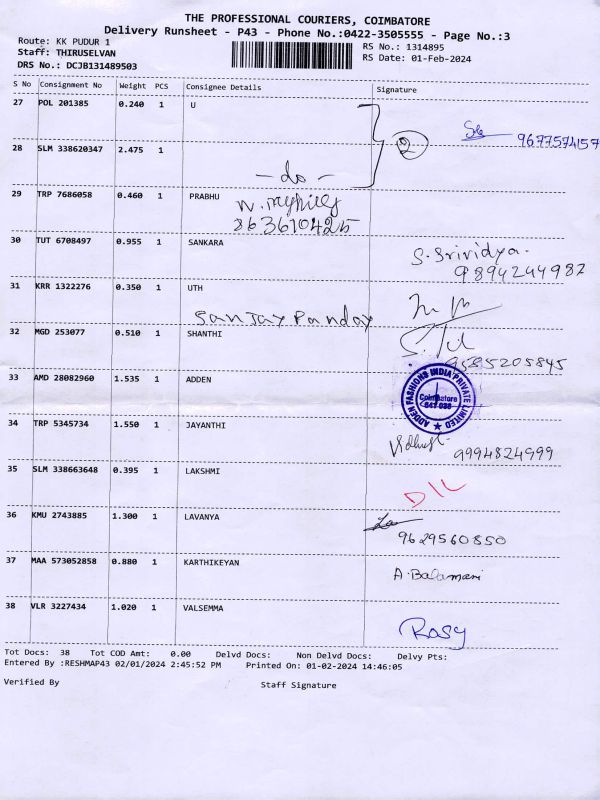 THE PROFESSIONAL COURIERS, COIMBATORE
Delivery Runsheet - P43 - Phone No.:0422-3505555 - Page No.:3
Route: KK PUDUR 1
RS No.: 1314895
Staff: THIRUSELVAN
RS Date: 01-Feb-2024
DRS No.: DCJB131489503
S No Consignment No Weight PCS Consignee Details Signature
27 POL 201385 0.240 1 U
2 9677574157
28 SLM 338620347 2.475 1
- do -
29 TRP 7686058 0.460 1 PRABHU
8636910425
30 TUT 6708497 0.955 1 SANKARA
S. Srividya.
9894244982
31 KRR 1322276 0.350 1 UTH
Sanjay Panday
32 MGD 253077 0.510 1 SHANTHI
9585205845
33 AMD 28082960 1.535 1 ADDEN
ADDEN FASHIONS INDIA PRIVATE LIMITED
Coimbatore
641 038
34 TRP 5345734 1.550 1 JAYANTHI
9994824999
35 SLM 338663648 0.395 1 LAKSHMI
D/L
36 KMU 2743885 1.300 1 LAVANYA
9629560850
37 MAA 573052858 0.880 1 KARTHIKEYAN
A. Balamani
38 VLR 3227434 1.020 1 VALSEMMA
Rosy
Tot Docs: 38 Tot COD Amt: 0.00 Delvd Docs: Non Delvd Docs: Delvy Pts:
Entered By :RESHMAP43 02/01/2024 2:45:52 PM Printed On: 01-02-2024 14:46:05
Verified By Staff Signature